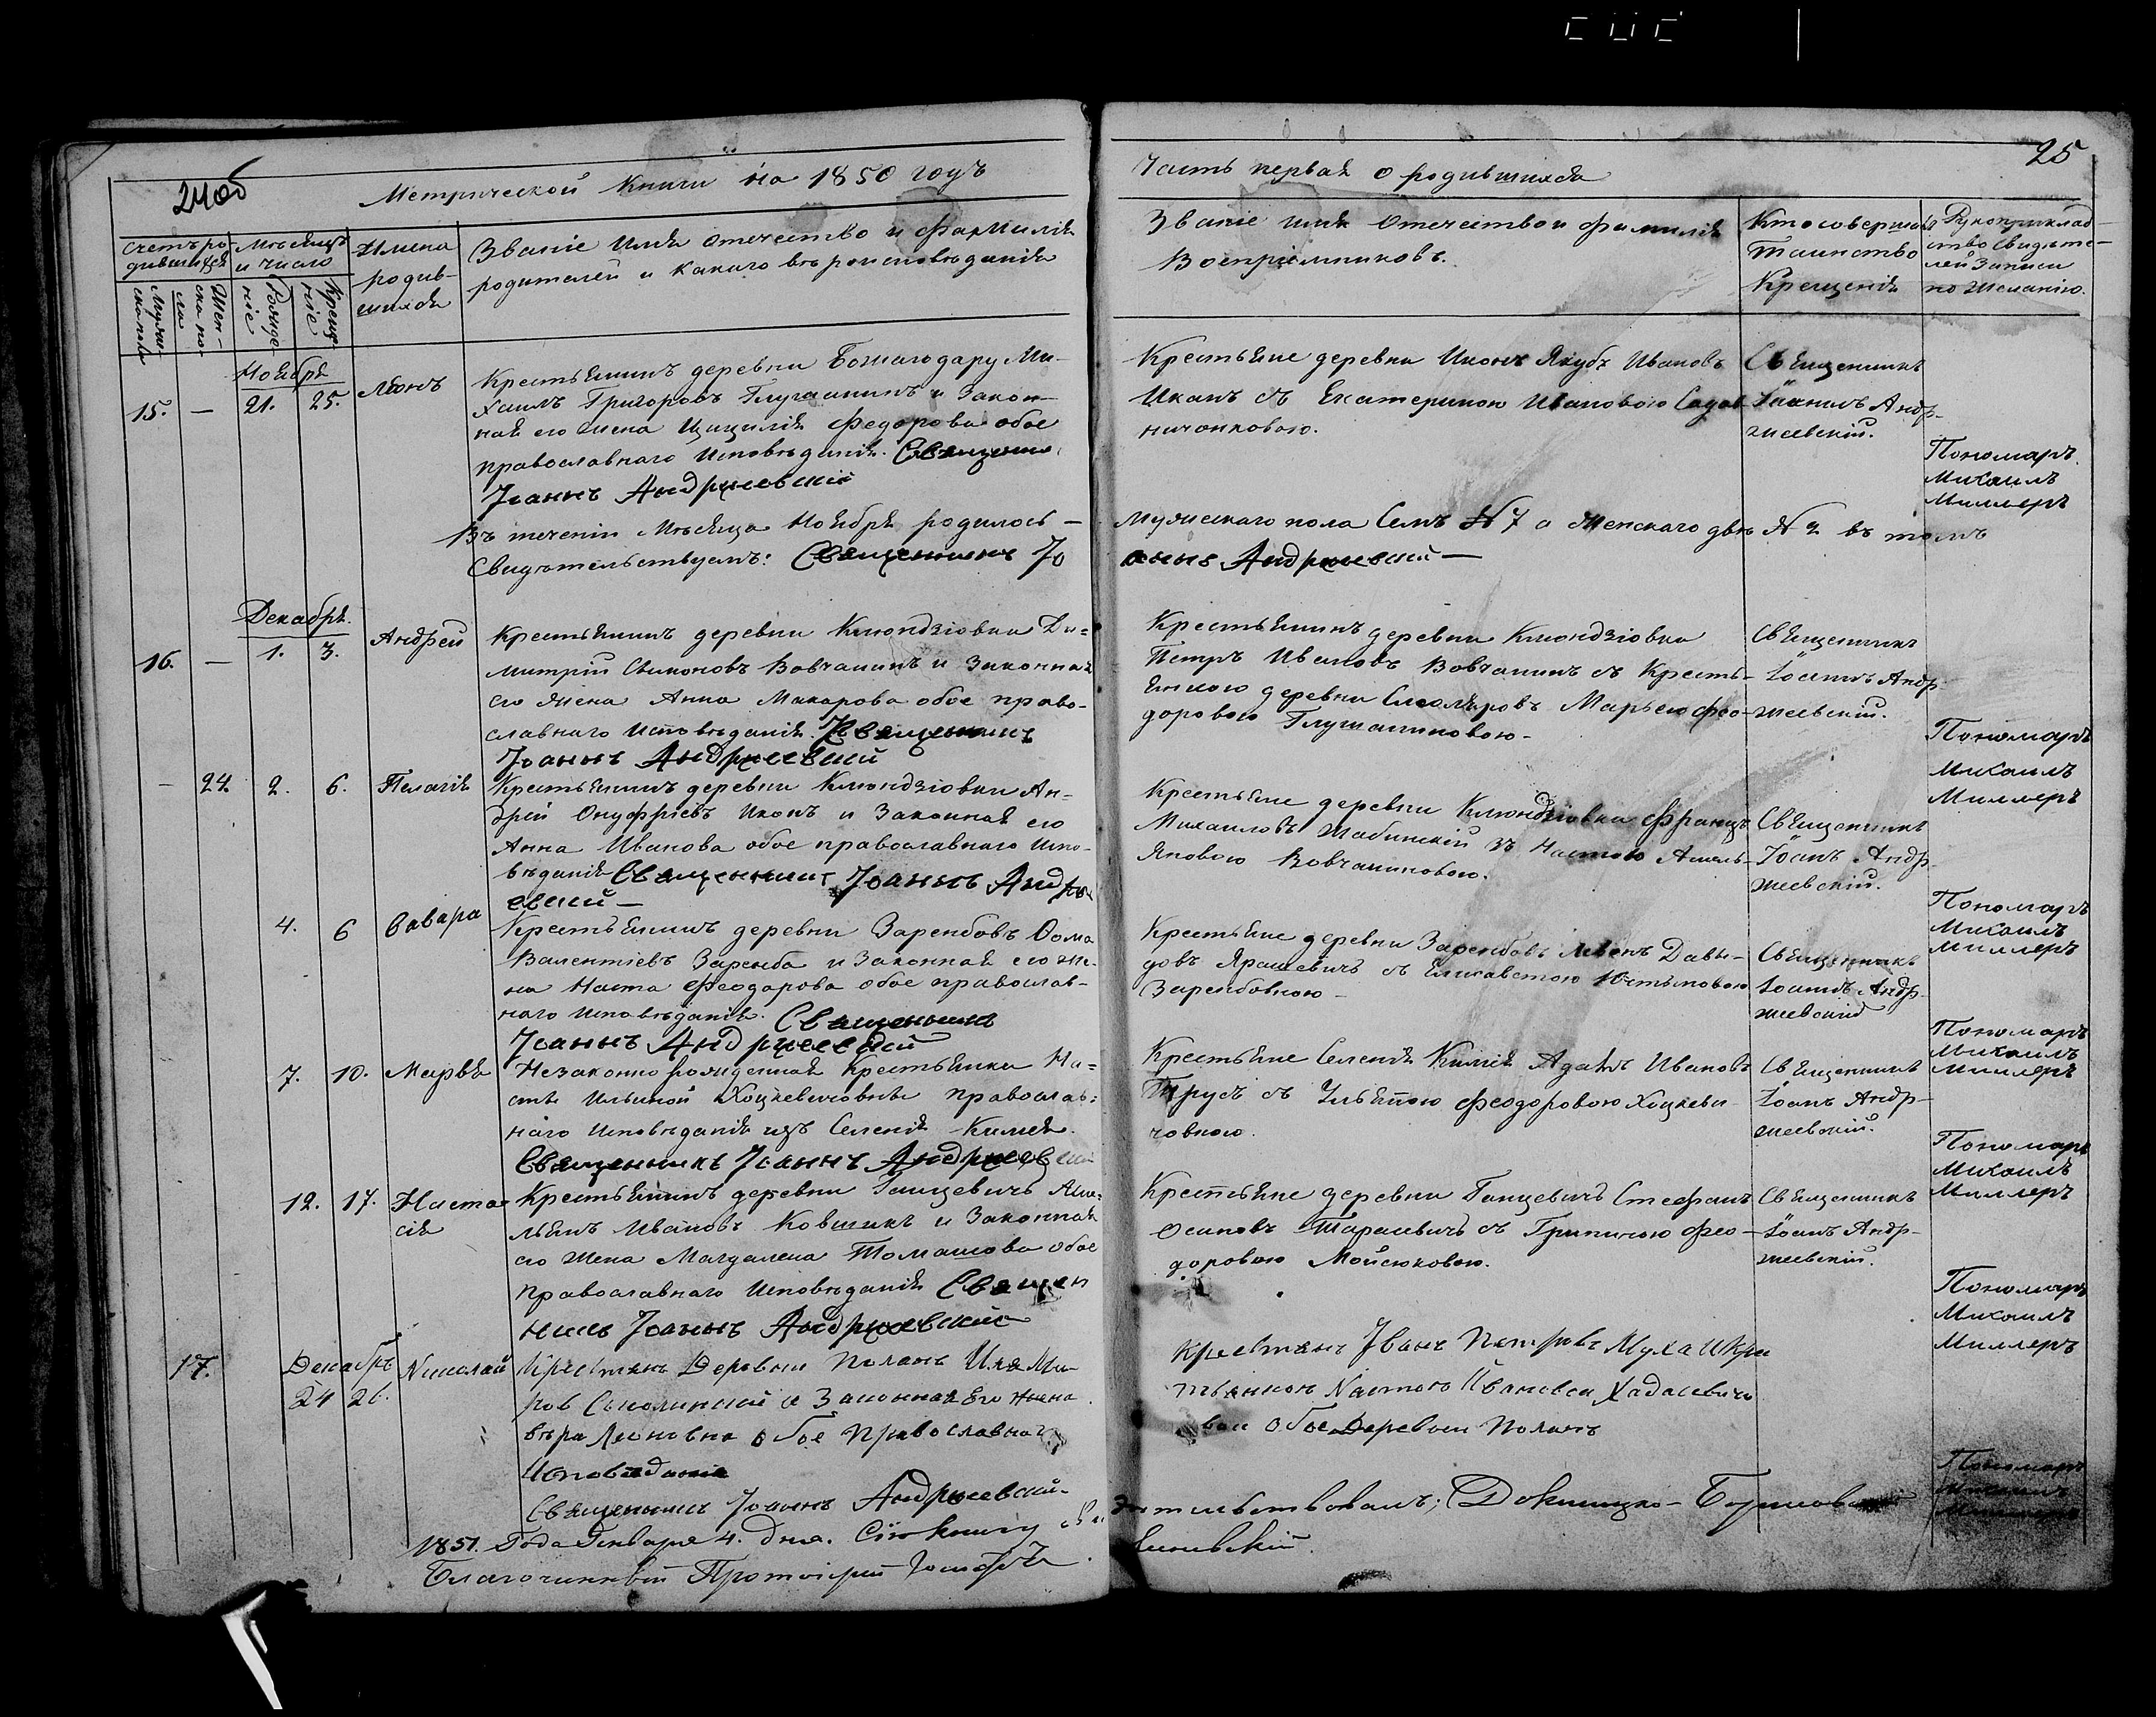 24об
25
Метрической Книги на 1850 годъ
Часть первая о родившихся
Счетъ ро-
дившихся
Мѣсяцъ
и число
Имена
родив-
шихся
Званіе имя отечество и фамилія
родителей и какаго вѣроисповѣданія
Званіе имя отечество и фамилія
Воспріемниковъ.
Кто совершалъ
Таинство
Крещенія
Рукоприклад-
ство свидѣте-
лей записи
по желанію.
Рожде-
ніе
Креще-
ніе
Ноября
15. — 21. 25.
Леонъ
Крестьянинъ деревни Божагодару Ми-
хаилъ Григоровъ Глушанинъ и Закон-
ная его жена Цицилія Федорова обое
православнаго исповѣданія. Священни
Іоаннъ Андржеевскій
Крестьяне деревни Иконъ Якубъ Ивановъ
Иканъ съ Екатериною Ивановою
ничонковою.
Священникъ
Іоаннъ Андр-
жеевскій.
Пономарь
Михаилъ
Миллеръ
Въ теченіи Мѣсяца Ноября родилось —
мужескаго пола Семь № 7 а Женскаго двѣ № 2 въ томъ
Свидѣтельствуемъ: Священникъ Іо
аннъ Андржеевскій —
Декабря.
16. — 1. 3.
Андрей
Крестьянинъ деревни Клюндзіовки Ди-
митрій Сымоновъ Вовчанинъ и Законная
его жена Анна Макарова обое право-
славнаго исповѣданія. Священникъ
Іоаннъ Андржеевскій
Крестьянинъ деревни Клюндзіовки
Петръ Ивановъ Вовчанинъ съ Кресть-
янкою деревни Смоляровъ Марьею Фео-
доровою Глушаниновою-
Священникъ
Іоаннъ Андр-
жеевскій.
Пономарь
Михаилъ
Миллеръ
— 24 2. 6.
Пелагія
Крестьянинъ деревни Клюндзіовки Ан-
дрей Онуфріевъ Иконъ и Законная его
Анна Иванова обое православнаго испо-
вѣданія Священникъ Іоаннъ Андрже
евскій —
Крестьяне деревни Клюндзіовки Францъ
Михаиловъ Жабинскій зъ Настою Амель-
яновою Вовчаниновою.
Священникъ
Іоанъ Андр-
жеевскій.
Пономарь
Михаилъ
Миллеръ
4. 6
Вавара
Крестьянинъ деревни Зарембовъ Ѳома
Валентіевъ Заремба и Законная его же-
на Наста Феодорова обое православ-
наго исповѣданія. Священникъ
Іоаннъ Андржеевскій
Крестьяне деревни Зарембовъ Левонъ Давы-
довъ Ярашевичъ съ Елисаветою Юстыновою
Зарембовною-
Священникъ
Іоаннъ Андр-
жеевскій
Пономарь
Михаилъ
Миллеръ
7. 10.
Марья
Незаконно рожденная Крестьянки На-
стѣ Ильиной Хоцкевичовны православ-
наго исповѣданія изъ Селенія Кимея.
Священникъ Іоаннъ Андржеевскій
Крестьяне Селенія Кимея Адамъ Ивановъ
Трусъ съ Ульяною Феодоровою Хоцкеви-
човною.
Священникъ
Іоанъ Андр-
жеевскій.
Пономарь
Михаилъ
Миллеръ
12. 17.
Наста-
сія
Крестьянинъ деревни Ганцевичъ Аме-
льянъ Ивановъ Ковшикъ и Законная
его жена Магдалена Томашова обое
православнаго исповѣданія Священ
никъ Іоаннъ Андржеевскій
Крестьяне деревни Ганцевичъ Стефанъ
Осиповъ Тарасевичъ съ Грипиною Фео-
доровою Мойсюковою.
Священникъ
Іоанъ Андр-
жеевскій.
Пономарь
Михаилъ
Миллеръ
17. Декабрь
24 26.
Николай
Крестьянъ Деревни Полянъ
ров и Законная Его жена
вѣра Леоновна обое Православнаго
Исповѣданія
Священникъ Іоаннъ Андржеевскій-
Крестьянъ Іванъ Петровъ Муха
тьянкою Настою Івановой Хадасевичо
вой обое Деревни Полянъ
Пономарь
Михаилъ
Миллеръ
1851. Года Генваря 4. дня. Сію книгу сви
дѣтельствовалъ; Докшицко-Борисовскій
Благочинный Протоіерей